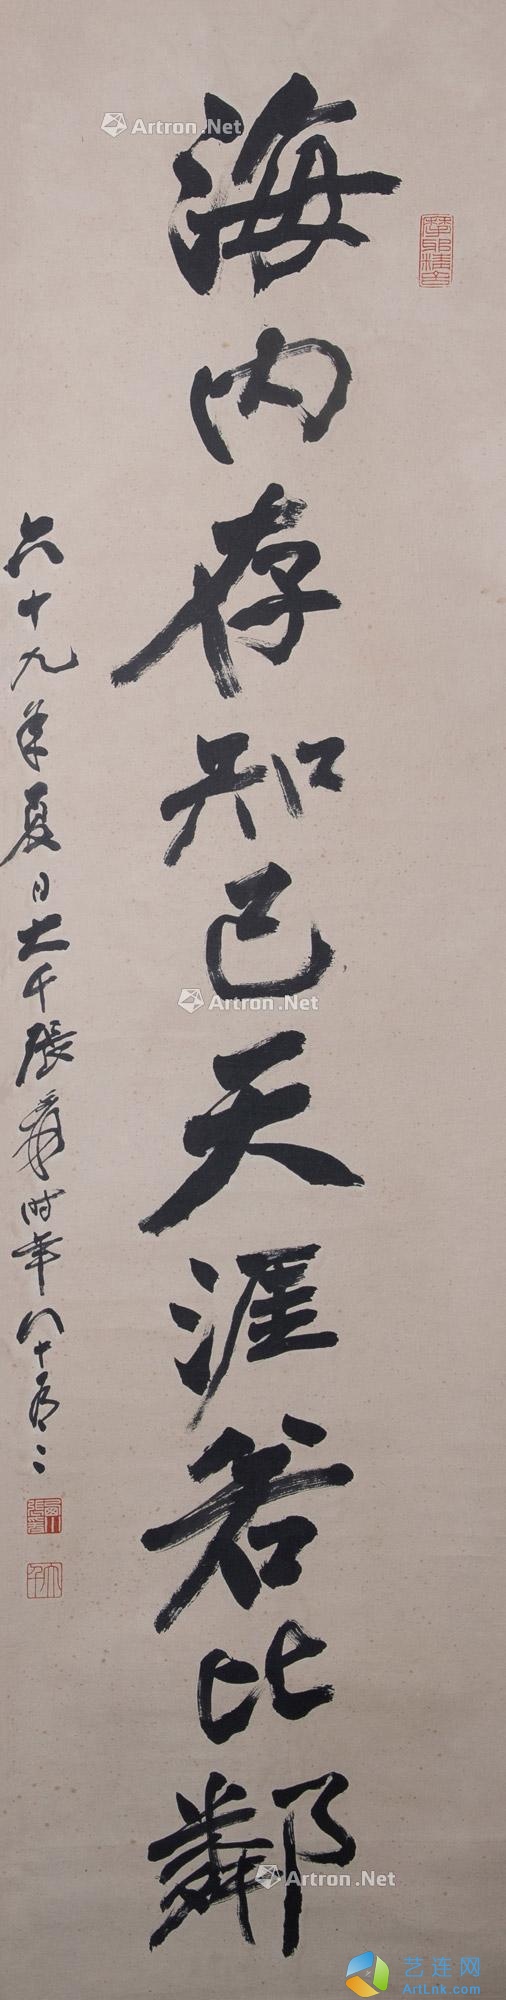 海内存知己天涯若比鄰
六十九年夏日大千張爰時年八十有二
Artron.Net
Artron.Net
Artron.Net
艺连网
ArtLnk.Com